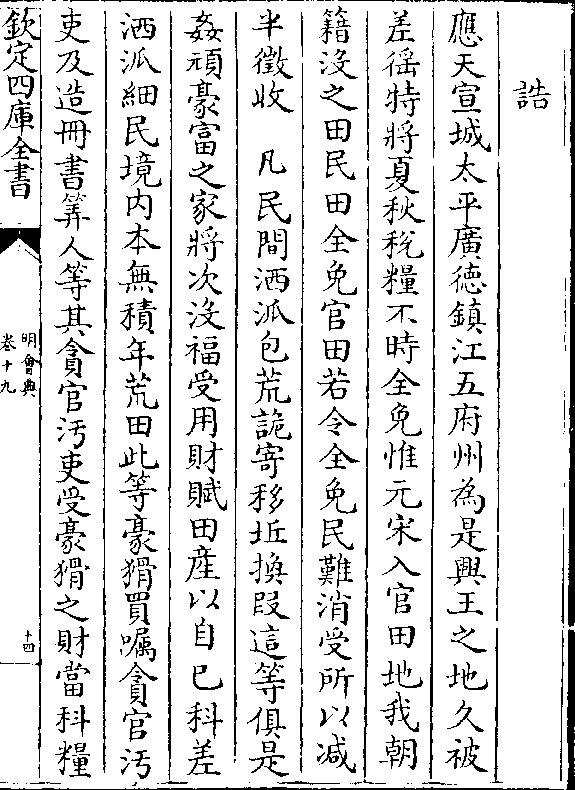 誥
應天宣城太平廣徳鎮江五府州為是興王之地久被
差徭特將夏秋稅糧不時全免惟元宋入官田地我朝
籍没之田民田全免官田若令全免民難消受所以减
半徵收　凡民間洒派包荒詭寄移坵換段這等俱是
姦頑豪富之家將次没福受用財賦田産以自己科差
洒派細民境内本無積年荒田此等豪猾買嘱貪官汚
吏及造冊書筭人等其貪官汚吏受豪猾之財當科糧
欽定四庫全書
明會典
卷十九
十四